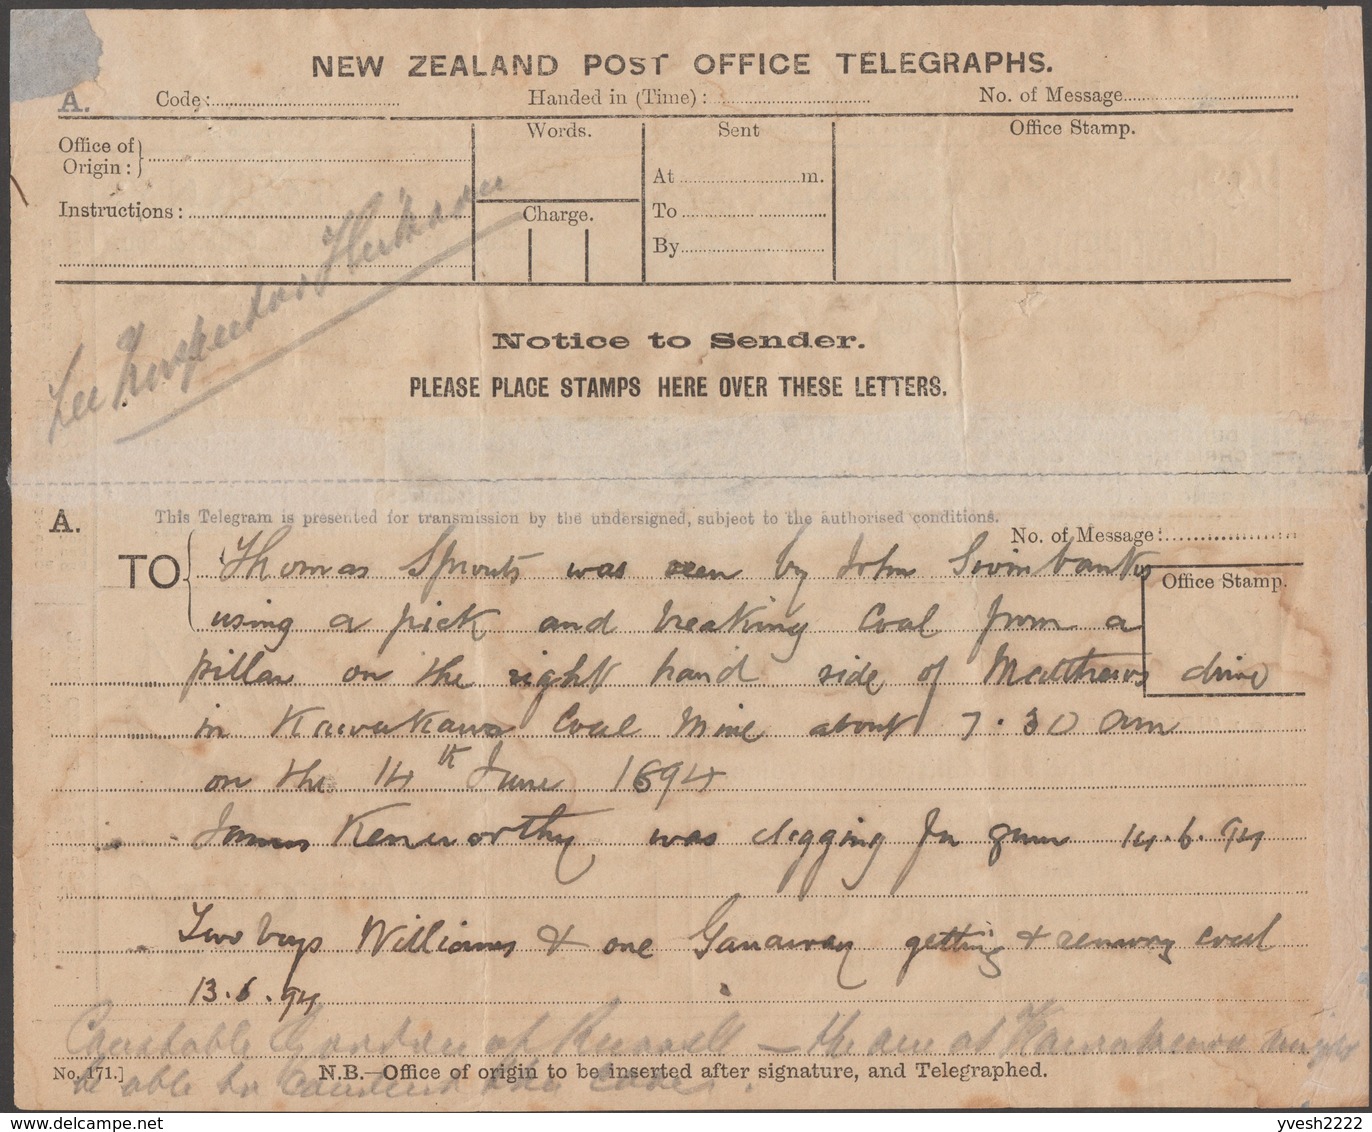 NEW ZEALAND POST OFFICE TELEGRAPHS.
A. Code: Handed in (Time): No. of Message
Office of Origin: Words. Sent Office Stamp.
At m.
Instructions: Charge. To
By
See Inspector Hickson
Notice to Sender.
PLEASE PLACE STAMPS HERE OVER THESE LETTERS.
A. This Telegram is presented for transmission by the undersigned, subject to the authorised conditions.
No. of Message:
TO Thomas Sprouts was seen by John Swinbanks
Office Stamp.
using a pick and breaking Coal from a
pillar on the right hand side of Matthews drive
in Kawakawa Coal Mine about 7.30 am
on the 14th June 1894
James Kenworthy was digging for gum 14.6.94
Two boys Williams & one Ganaway getting & removing coal
13.6.94
Constable Gordon of Russell — the one at Kawakawa might
be able to conduct the case.
No. 171.] N.B.—Office of origin to be inserted after signature, and Telegraphed.
yvesh2222